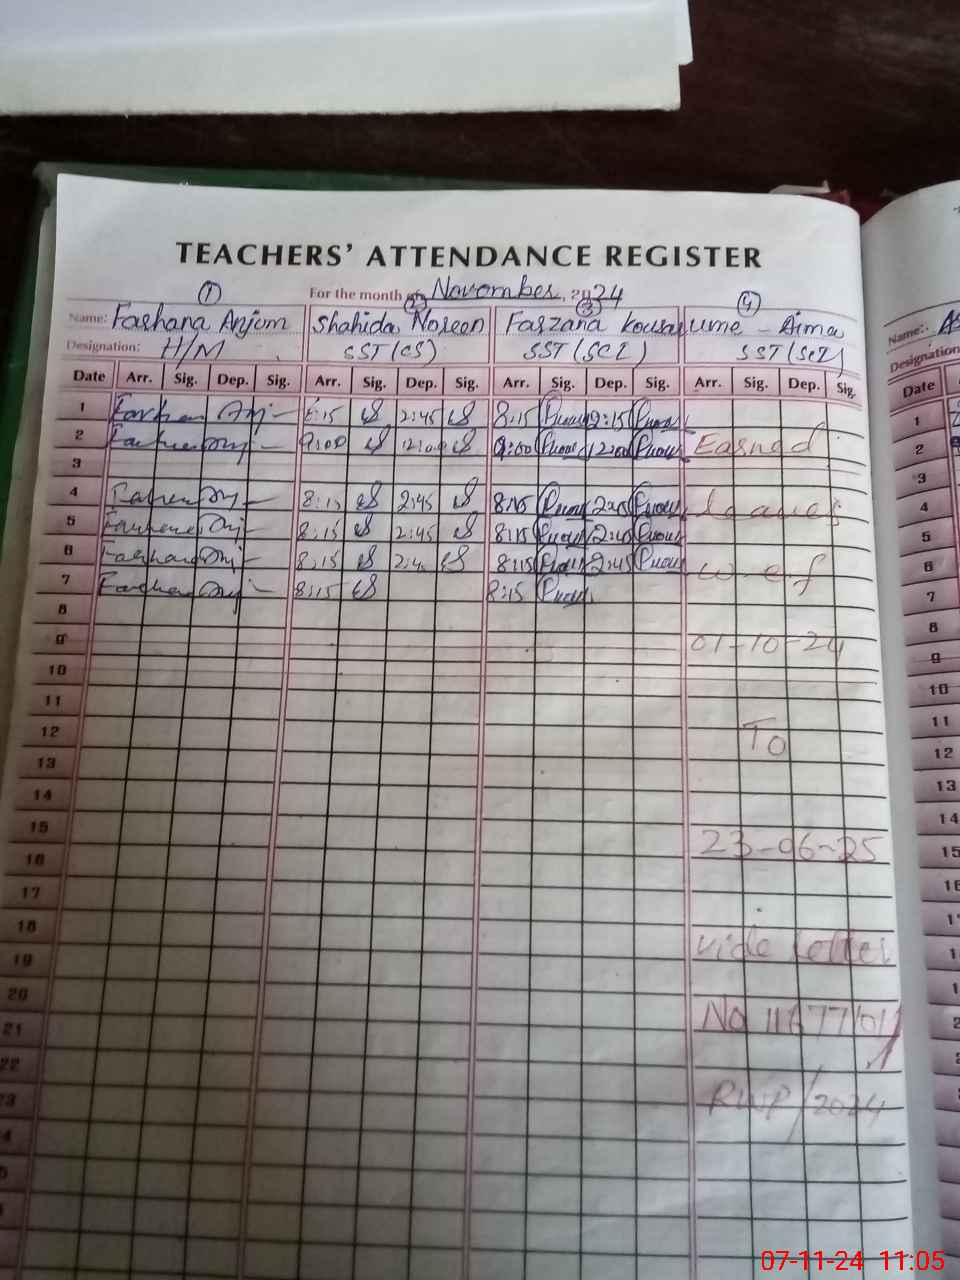 TEACHERS' ATTENDANCE REGISTER
For the month of November, 2024
1 2 3 4
Name: Farhana Anjum Shahida Noreen Farzana Kousar ume - Aima
Designation: H/M SST (CS) SST (SCI) SST (SCI)
Date Arr. Sig. Dep. Sig. Arr. Sig. Dep. Sig. Arr. Sig. Dep. Sig. Arr. Sig. Dep. Sig.
1 8:15 2:45 8:15 2:15
2 9:00 12:00 9:00 12:00 Earned
3
4 8:15 2:45 8:15 2:45 Leaves
5 8:15 2:45 8:15 2:45
6 8:15 2:4 8:15 2:45 w-e-f
7 8:15 8:15
8
9 01-10-24
10
11
12 To
13
14
15 23-06-25
16
17
18 vide letter
19
20 No 11677/01/
21
22
23 RWP/2024
Name:
Designation
Date
1
2
3
4
5
6
7
8
9
10
11
12
13
14
07-11-24 11:05